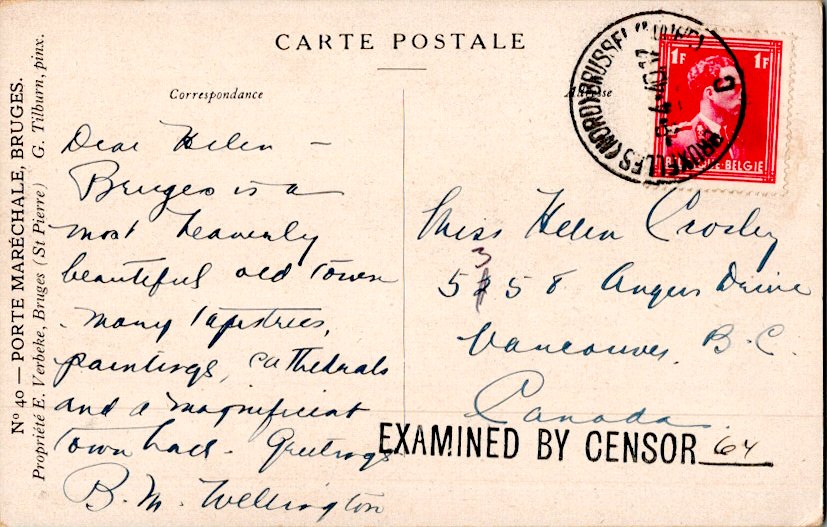 CARTE POSTALE
Correspondance
Adresse
Dear Helen –
Bruges is a
most heavenly
beautiful old town
. many tapestries,
paintings, cathedrals
and a magnificent
town hall. Greetings
B. M. Wellington
Miss Helen Crosby
3
5 58 Angus Drive
Vancouver, B.C.
Canada.
EXAMINED BY CENSOR 64
Nº 40 — PORTE MARÉCHALE, BRUGES.
Propriété E. Verbeke, Bruges (St Pierre) G. Tilburn, pinx.
BRUXELLES (NORD) BRUSSEL
C
1F 1F
BELGIE